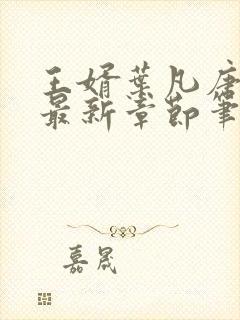 王婿葉凡唐
最新章節筆
嘉晟